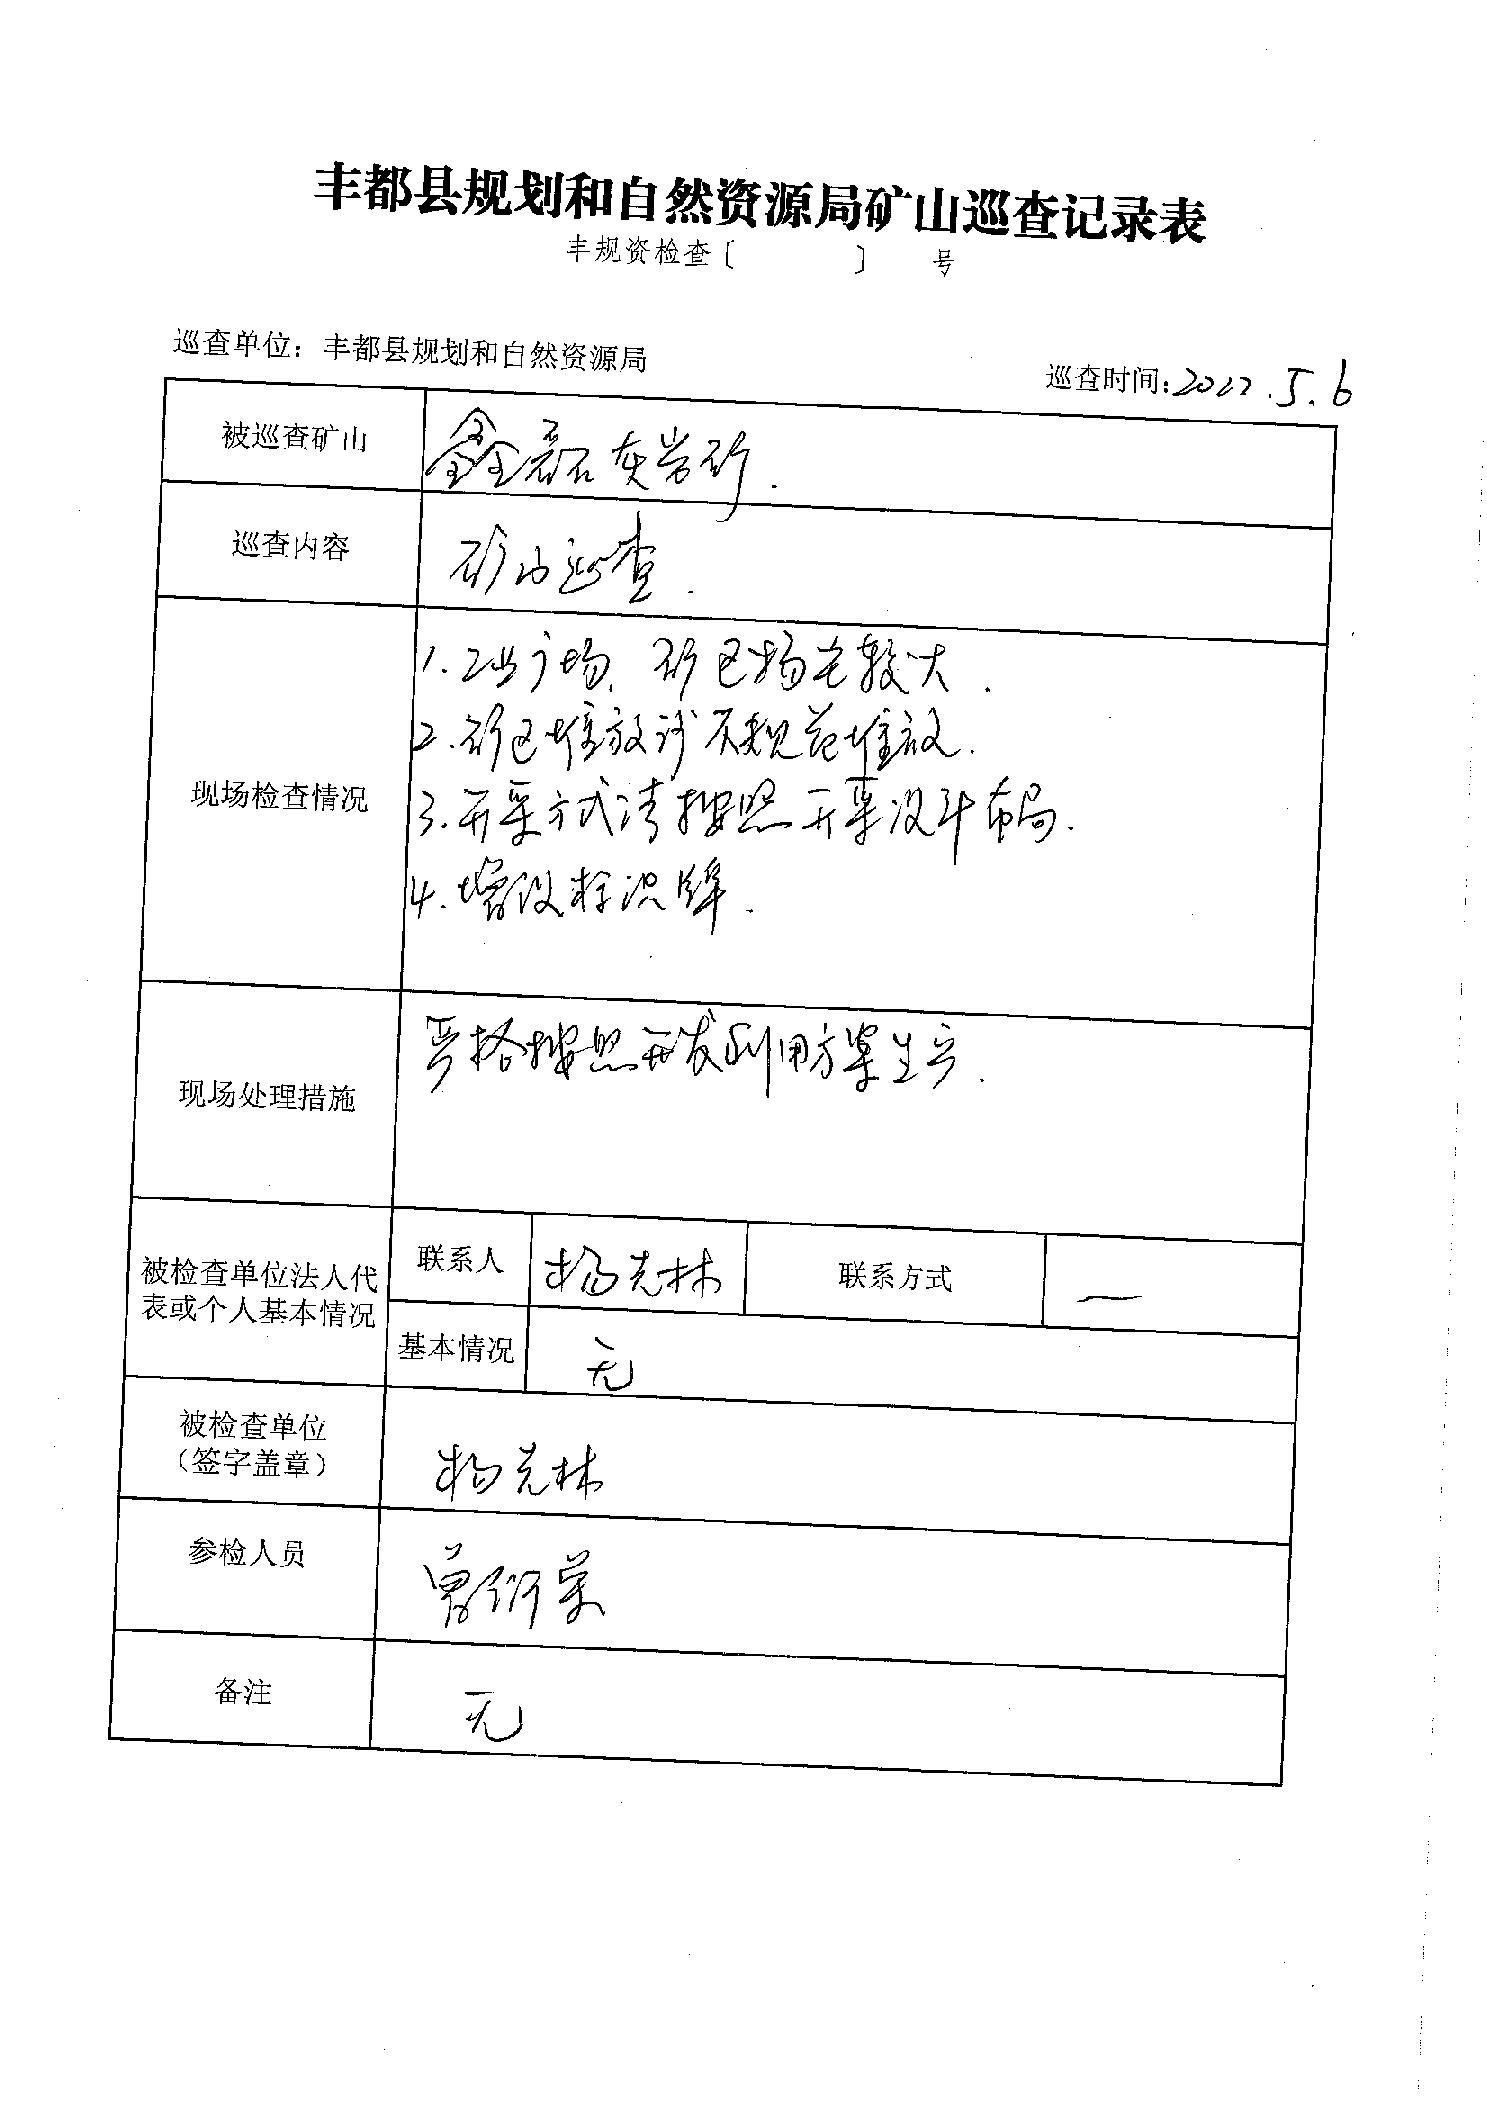 丰都县规划和自然资源局矿山巡查记录表
丰规资检查〔 〕 号
巡查单位：丰都县规划和自然资源局
巡查时间：2022.5.6
被巡查矿山 鑫磊石灰岩矿.
巡查内容 矿山巡查.
现场检查情况
1.工业广场、矿区扬尘较大.
2.矿区堆放 不规范堆放.
3.开采方式请按照开采设计布局.
4.增设标识牌.
现场处理措施 严格按照开发利用方案生产.
被检查单位法人代
表或个人基本情况
联系人 杨克林 联系方式 —
基本情况 无
被检查单位
（签字盖章） 杨克林
参检人员 曾 荣
备注 无